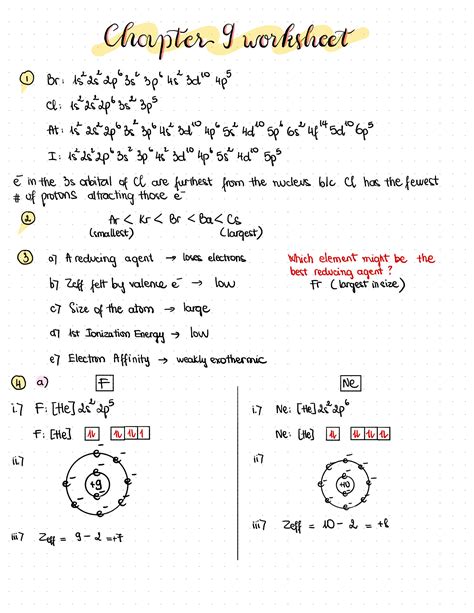 Chapter 9 worksheet
① Br: 1s² 2s² 2p⁶ 3s² 3p⁶ 4s² 3d¹⁰ 4p⁵
Cl: 1s² 2s² 2p⁶ 3s² 3p⁵
At: 1s² 2s² 2p⁶ 3s² 3p⁶ 4s² 3d¹⁰ 4p⁶ 5s² 4d¹⁰ 5p⁶ 6s² 4f¹⁴ 5d¹⁰ 6p⁵
I: 1s² 2s² 2p⁶ 3s² 3p⁶ 4s² 3d¹⁰ 4p⁶ 5s² 4d¹⁰ 5p⁵
e⁻ in the 3s orbital of Cl are furthest from the nucleus b/c Cl has the fewest
# of protons attracting those e⁻
② Ar < Kr < Br < Ba < Cs
(smallest) (largest)
③ a) A reducing agent → loses electrons
Which element might be the
best reducing agent?
Fr (largest in size)
b) Zeff felt by valence e⁻ → low
c) Size of the atom → large
d) 1st Ionization Energy → low
e) Electron Affinity → weakly exothermic
④ a) F
i.) F: [He] 2s² 2p⁵
F: [He] ⥮ ⥮ ⥮ ↿
ii)
e⁻ e⁻ e⁻ e⁻ e⁻ e⁻ e⁻ e⁻ e⁻
+9
iii) Zeff = 9 - 2 = +7
Ne
i.) Ne: [He] 2s² 2p⁶
Ne: [He] ⥮ ⥮ ⥮ ⥮
ii)
e⁻ e⁻ e⁻ e⁻ e⁻ e⁻ e⁻ e⁻ e⁻ e⁻
+10
iii) Zeff = 10 - 2 = +8